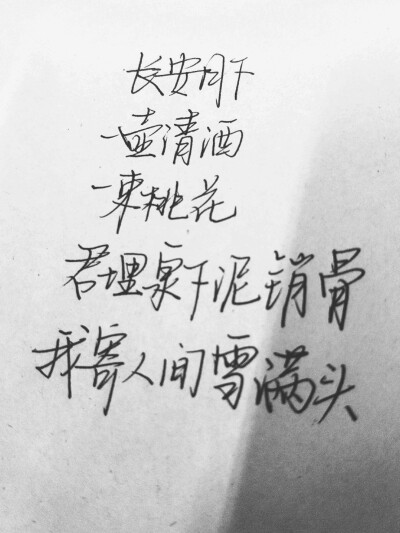 长安月下
一壶清酒
一束桃花
君埋泉下泥销骨
我寄人间雪满头